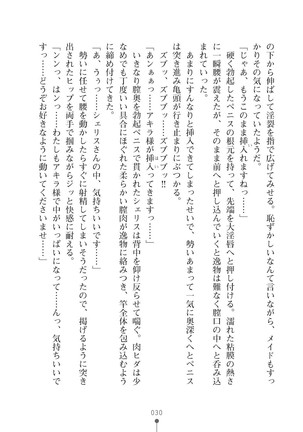 の下から伸ばして淫裂を指で広げてみせる。恥ずかしいなんて言いながら、メイドもすっ
かりその気になっていたようだ。
「じゃあ、もうこのまま挿入れますねっ……」
硬く勃起したペニスの根元を持って、先端を大淫唇へと押し付ける。濡れた粘膜の熱さ
に一瞬腰が震えるが、そのまま前へと押し込んでいくと逸物は難なく膣口の中へと呑み込
まれる。あんまりすんなりと挿入できてしまったので、せいいあまって一気に奥深くへとペニス
を突き進み亀頭が行き止まりにぶつかる。
ズブッ、ズブブッ……ズブブッ!!
「アンぁぁっ……アキラ様が挿入ってきますっっ」
いきなり膣奥を勃起ペニスで貫かれたシェリスは背中を仰け反らせて喘ぐ。肉ヒダは少
めでも丁度いい具合にほぐれた柔らかい膣肉が逸物に絡みつき、竿全体を包み込むよう
に締め付けてくる。
「あ、うっ……シェリスさんの中、気持ちいいですっ……」
勢いに任せて腰を動かしたらすぐに射精てしまいそうだったので、掲げるように突き
出されたヒップを両手で掴みながらジッと快感に耐える。
「ンンっ、はっ……わたしもアキラ様で中がいっぱいになって……んっ、気持ちいいで
すっ……どうぞお好きなように動いてくださいませっ……」
030